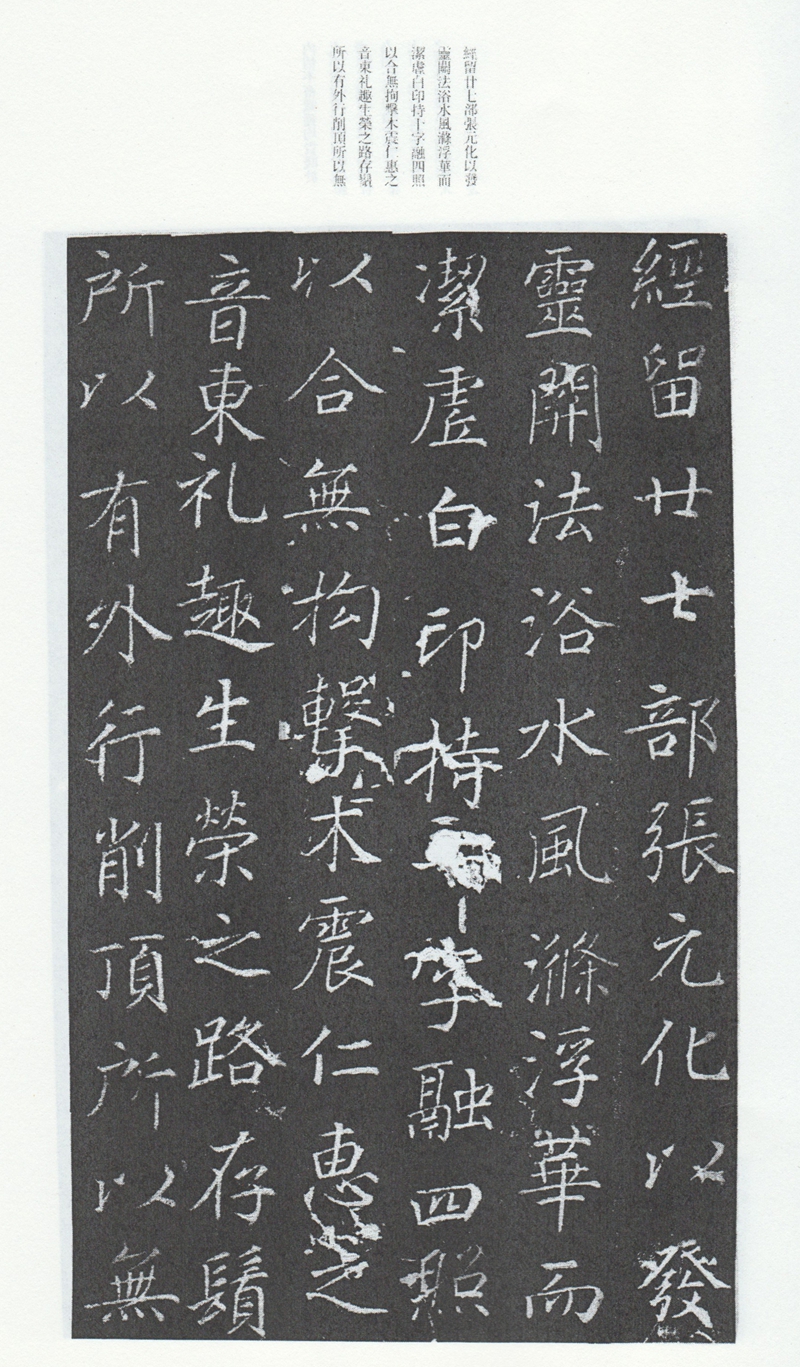 經留廿七部張元化以發
靈關法浴水風滌浮華而
潔虛白印持十字融四照
以合無拘擊木震仁惠之
音東礼趣生榮之路存鬚
所以有外行削頂所以無
經留廿七部張元化以發
靈關法浴水風滌浮華而
潔虛白印持十字融四照
以合無拘擊木震仁惠之
音東礼趣生榮之路存鬚
所以有外行削頂所以無